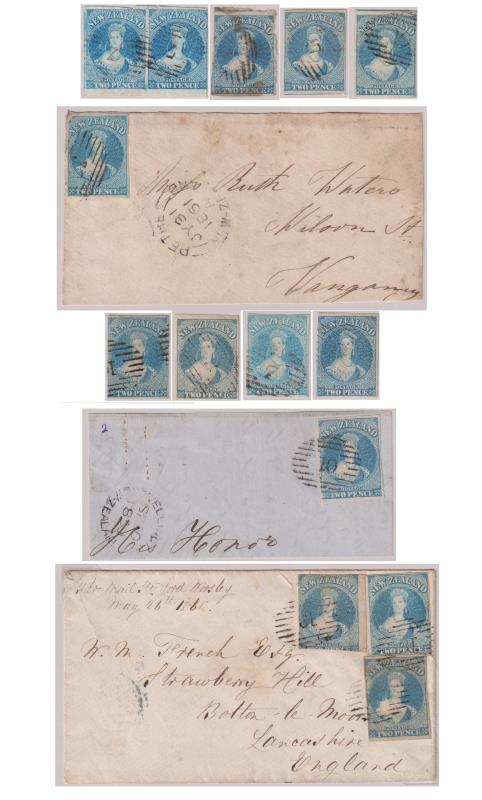 NEW ZEALAND NEW ZEALAND NEW ZEALAND NEW ZEALAND NEW ZEALAND
POSTAGE POSTAGE POSTAGE POSTAGE POSTAGE
TWO PENCE TWO PENCE TWO PENCE TWO PENCE TWO PENCE
NEW ZEALAND
POSTAGE
TWO PENCE
Miss Ruth Waters
Wilson St.
Wanganui
JY 31
1861
NEW ZEALAND NEW ZEALAND NEW ZEALAND NEW ZEALAND
POSTAGE POSTAGE POSTAGE POSTAGE
TWO PENCE TWO PENCE TWO PENCE TWO PENCE
2
NEW ZEALAND
10
TWO PENCE
His Honor
Per Mail Str. Lord Worsley
May 26th 186
NEW ZEALAND NEW ZEALAND
TWO PENCE TWO PENCE
NEW ZEALAND
TWO PENCE
W. M. French Esq.
Strawberry Hill
Bolton-le-Moors
Lancashire
England